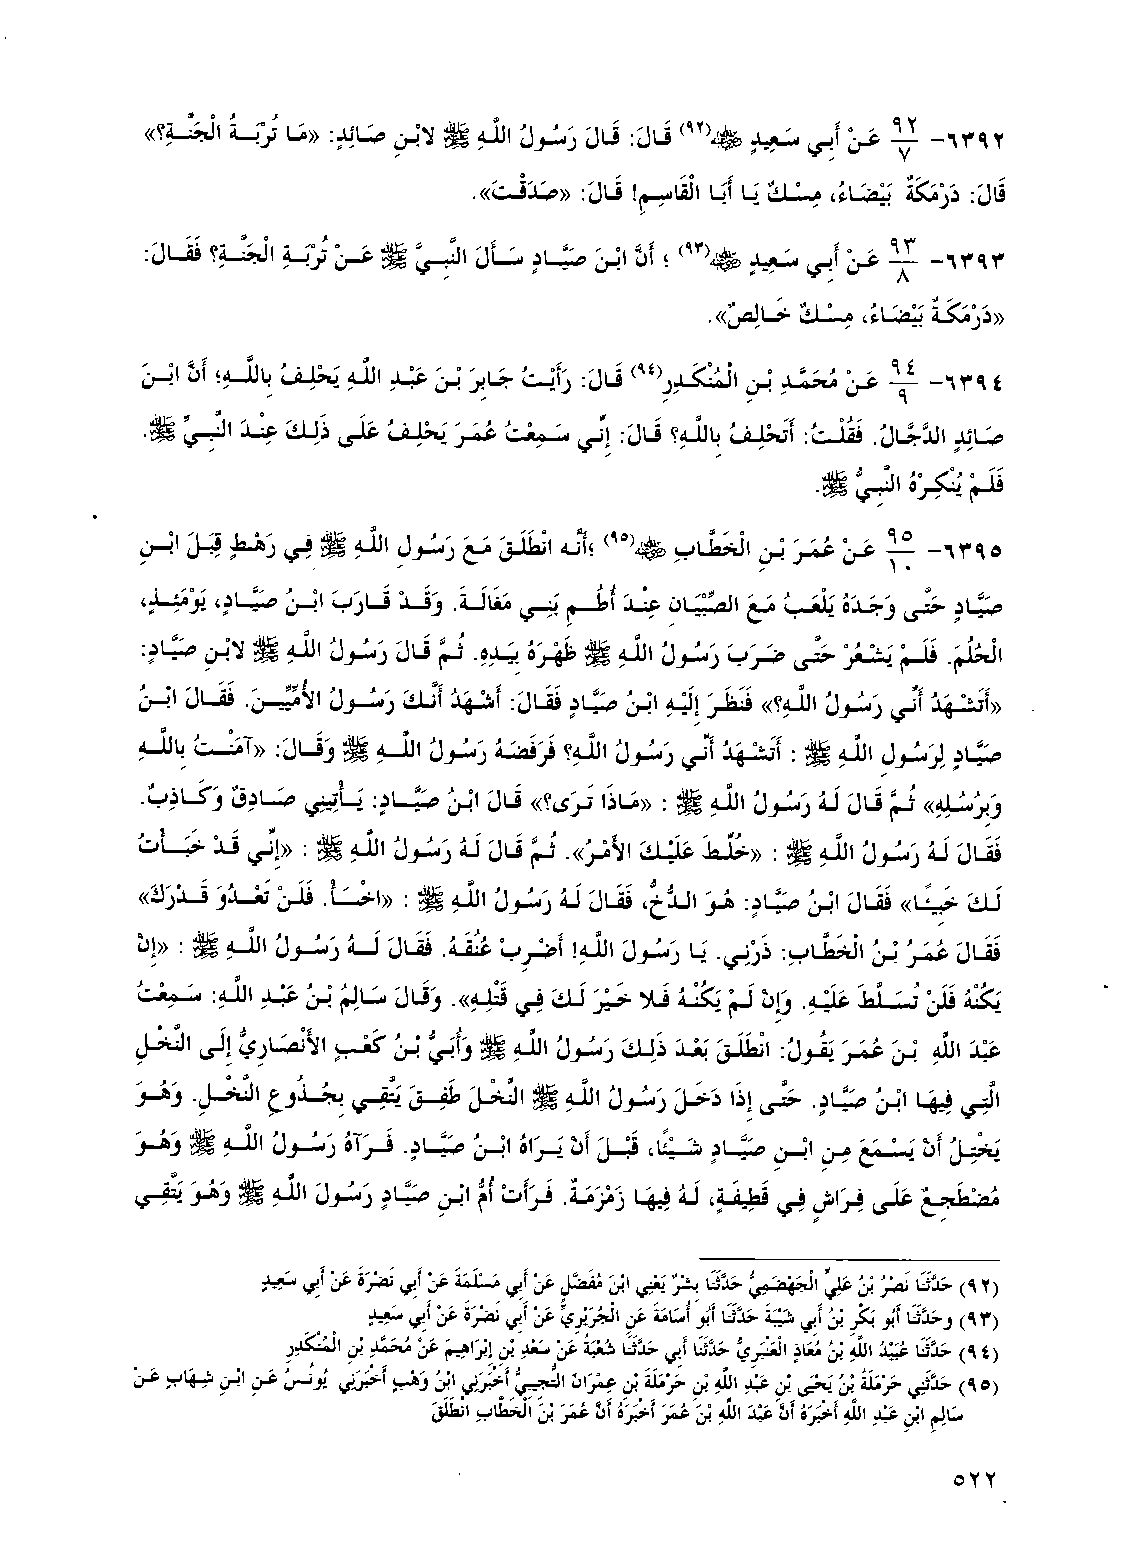 ٦٣٩٢- ٩٢/٧ عَنْ أَبِي سَعِيدٍ ﷺ(٩٢) قَالَ: قَالَ رَسُولُ اللَّهِ ﷺ لابْنِ صَائِدٍ: «مَا تُرْبَةُ الْجَنَّةِ؟»
قَالَ: دَرْمَكَةٌ بَيْضَاءُ، مِسْكٌ يَا أَبَا الْقَاسِمِ! قَالَ: «صَدَقْتَ».
٦٣٩٣- ٩٣/٨ عَنْ أَبِي سَعِيدٍ ﷺ(٩٣) ؛ أَنَّ ابْنَ صَيَّادٍ سَأَلَ النَّبِيَّ ﷺ عَنْ تُرْبَةِ الْجَنَّةِ؟ فَقَالَ:
«دَرْمَكَةٌ بَيْضَاءُ، مِسْكٌ خَالِصٌ».
٦٣٩٤- ٩٤/٩ عَنْ مُحَمَّدِ بْنِ الْمُنْكَدِرِ(٩٤) قَالَ: رَأَيْتُ جَابِرَ بْنَ عَبْدِ اللَّهِ يَحْلِفُ بِاللَّهِ؛ أَنَّ ابْنَ
صَائِدٍ الدَّجَّالُ. فَقُلْتُ: أَتَحْلِفُ بِاللَّهِ؟ قَالَ: إِنِّي سَمِعْتُ عُمَرَ يَحْلِفُ عَلَى ذَلِكَ عِنْدَ النَّبِيِّ ﷺ.
فَلَمْ يُنْكِرْهُ النَّبِيُّ ﷺ.
٦٣٩٥- ٩٥/١٠ عَنْ عُمَرَ بْنِ الْخَطَّابِ ﷺ(٩٥) ؛أَنَّه انْطَلَقَ مَعَ رَسُولِ اللَّهِ ﷺ فِي رَهْطٍ قِبَلَ ابْنِ
صَيَّادٍ حَتَّى وَجَدَهُ يَلْعَبُ مَعَ الصِّبْيَانِ عِنْدَ أُطُمِ بَنِي مَغَالَةَ. وَقَدْ قَارَبَ ابْنُ صَيَّادٍ، يَوْمَئِذٍ،
الْحُلُمَ. فَلَمْ يَشْعُرْ حَتَّى ضَرَبَ رَسُولُ اللَّهِ ﷺ ظَهْرَهُ بِيَدِهِ. ثُمَّ قَالَ رَسُولُ اللَّهِ ﷺ لابْنِ صَيَّادٍ:
«أَتَشْهَدُ أَنِّي رَسُولُ اللَّهِ؟» فَنَظَرَ إِلَيْهِ ابْنُ صَيَّادٍ فَقَالَ: أَشْهَدُ أَنَّكَ رَسُولُ الأُمِّيِّينَ. فَقَالَ ابْنُ
صَيَّادٍ لِرَسُولِ اللَّهِ ﷺ : أَتَشْهَدُ أَنِّي رَسُولُ اللَّهِ؟ فَرَفَضَهُ رَسُولُ اللَّهِ ﷺ وَقَالَ: «آمَنْتُ بِاللَّهِ
وَبِرُسُلِهِ» ثُمَّ قَالَ لَهُ رَسُولُ اللَّهِ ﷺ : «مَاذَا تَرَى؟» قَالَ ابْنُ صَيَّادٍ: يَأْتِينِي صَادِقٌ وَكَاذِبٌ.
فَقَالَ لَهُ رَسُولُ اللَّهِ ﷺ : «خُلِّطَ عَلَيْكَ الأَمْرُ». ثُمَّ قَالَ لَهُ رَسُولُ اللَّهِ ﷺ : «إِنِّي قَدْ خَبَأْتُ
لَكَ خَبِيئًا» فَقَالَ ابْنُ صَيَّادٍ: هُوَ الدُّخُّ، فَقَالَ لَهُ رَسُولُ اللَّهِ ﷺ : «اخْسَأْ. فَلَنْ تَعْدُوَ قَدْرَكَ»
فَقَالَ عُمَرُ بْنُ الْخَطَّابِ: ذَرْنِي. يَا رَسُولَ اللَّهِ! أَضْرِبْ عُنُقَهُ. فَقَالَ لَهُ رَسُولُ اللَّهِ ﷺ : «إِنْ
يَكُنْهُ فَلَنْ تُسَلَّطَ عَلَيْهِ. وَإِنْ لَمْ يَكُنْهُ فَلا خَيْرَ لَكَ فِي قَتْلِهِ». وَقَالَ سَالِمُ بْنُ عَبْدِ اللَّهِ: سَمِعْتُ
عَبْدَ اللَّهِ بْنَ عُمَرَ يَقُولُ: انْطَلَقَ بَعْدَ ذَلِكَ رَسُولُ اللَّهِ ﷺ وَأُبَيُّ بْنُ كَعْبٍ الأَنْصَارِيُّ إِلَى النَّخْلِ
الَّتِي فِيهَا ابْنُ صَيَّادٍ. حَتَّى إِذَا دَخَلَ رَسُولُ اللَّهِ ﷺ النَّخْلَ طَفِقَ يَتَّقِي بِجُذُوعِ النَّخْلِ. وَهُوَ
يَخْتِلُ أَنْ يَسْمَعَ مِنِ ابْنِ صَيَّادٍ شَيْئًا، قَبْلَ أَنْ يَرَاهُ ابْنُ صَيَّادٍ. فَرَآهُ رَسُولُ اللَّهِ ﷺ وَهُوَ
مُضْطَجِعٌ عَلَى فِرَاشٍ فِي قَطِيفَةٍ، لَهُ فِيهَا زَمْزَمَةٌ. فَرَأَتْ أُمُّ ابْنِ صَيَّادٍ رَسُولَ اللَّهِ ﷺ وَهُوَ يَتَّقِي
(٩٢) حَدَّثَنَا نَصْرُ بْنُ عَلِيٍّ الْجَهْضَمِيُّ حَدَّثَنَا بِشْرٌ يَعْنِي ابْنَ مُفَضَّلٍ عَنْ أَبِي مَسْلَمَةَ عَنْ أَبِي نَضْرَةَ عَنْ أَبِي سَعِيدٍ
(٩٣) وحَدَّثَنَا أَبُو بَكْرِ بْنُ أَبِي شَيْبَةَ حَدَّثَنَا أَبُو أُسَامَةَ عَنِ الْجُرَيْرِيِّ عَنْ أَبِي نَضْرَةَ عَنْ أَبِي سَعِيدٍ
(٩٤) حَدَّثَنَا عُبَيْدُ اللَّهِ بْنُ مُعَاذٍ الْعَنْبَرِيُّ حَدَّثَنَا أَبِي حَدَّثَنَا شُعْبَةُ عَنْ سَعْدِ بْنِ إِبْرَاهِيمَ عَنْ مُحَمَّدِ بْنِ الْمُنْكَدِرِ
(٩٥) حَدَّثَنِي حَرْمَلَةُ بْنُ يَحْيَى بْنِ عَبْدِ اللَّهِ بْنِ حَرْمَلَةَ بْنِ عِمْرَانَ التُّجِيبِيُّ أَخْبَرَنِي ابْنُ وَهْبٍ أَخْبَرَنِي يُونُسُ عَنِ ابْنِ شِهَابٍ عَنْ
سَالِمِ ابْنِ عَبْدِ اللَّهِ أَخْبَرَهُ أَنَّ عَبْدَ اللَّهِ بْنَ عُمَرَ أَخْبَرَهُ أَنَّ عُمَرَ بْنَ الْخَطَّابِ انْطَلَقَ
٥٢٢